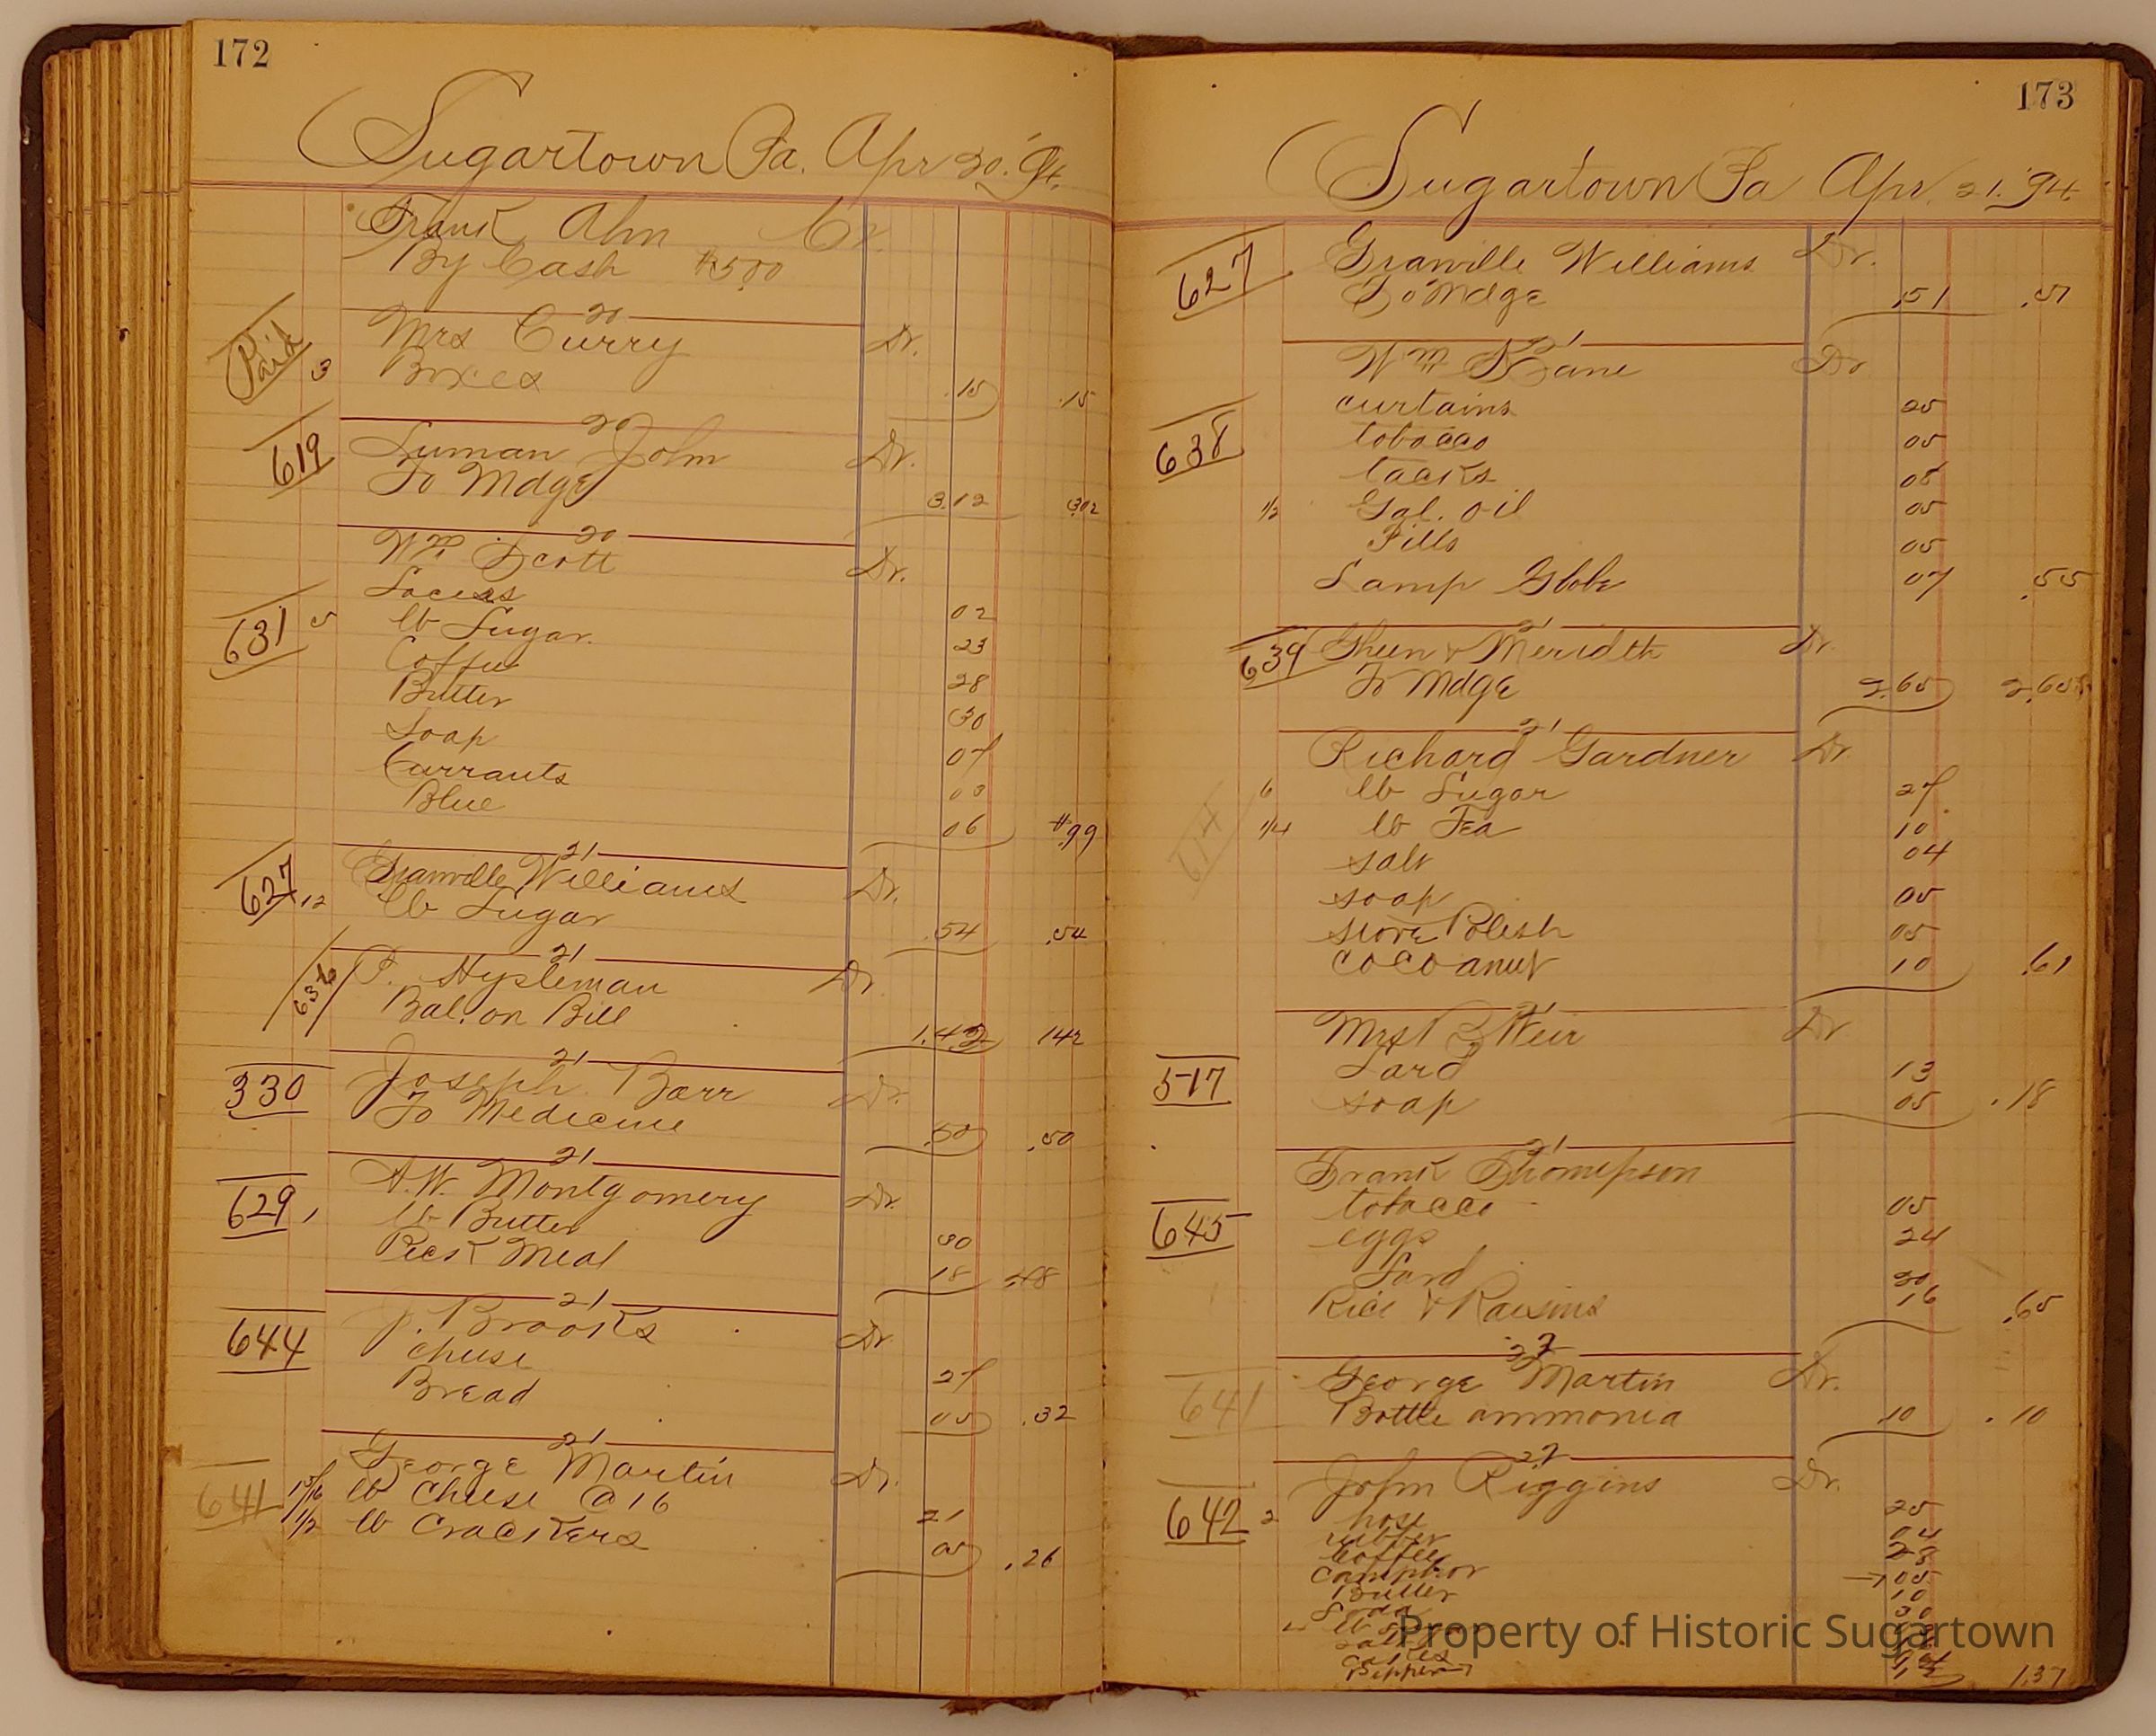 172
Sugartown Pa. Apr 20. '94.
Frank Ahn Cr.
By Cash $5.00
20
Mrs Curry Dr.
Paid 3 Boxes .15 .15
20
619 Luman John Dr.
To Mdge 3.12 3.12
20
Wm Scott Dr.
Laces 02
631 5 lb Sugar 23
Coffee 28
Butter 30
Soap 07
Currants 03
Blue 06 $.99
21
627 Granville Williams Dr.
12 lb Sugar .54 .54
21
P. Hysleman Dr.
Bal. on Bill 1.42 142
21
330 Joseph Barr Dr.
To Medicine .50 .50
21
629 A.W. Montgomery Dr.
1 lb Butter 30
Peck Meal 18 .48
21
644 J. Brooks Dr.
Cheese 27
Bread 05 .32
21
641 George Martin Dr.
1 5/16 lb Cheese @ 16 21
1/2 lb Crackers 05 .26
173
Sugartown Pa Apr. 21. '94.
627 Granville Williams Dr.
To Mdge .51 .51
21
Wm Kane Dr
curtains 25
638 tobacco 05
tacks 08
1/2 Gal. oil 05
Pills 05
Lamp Globe 07 .55
21
639 Gheen & Meridth Dr.
To Mdge 2.65 2.65
21
Richard Gardner Dr
614
6 lb Sugar 27
1/4 lb Tea 10
salt 04
soap 05
stove Polish 05
cocoanut 10 .61
21
Mrs B Weir Dr
517 Lard 13
soap 05 .18
21
Frank Thompson
645 tobacco 05
eggs 24
Lard 20
Rice & Raisins 16 .65
22
641 George Martin Dr.
Bottle ammonia 10 .10
22
John Riggins Dr.
642 2 hose 25
rubber 04
Coffee 28
Camphor 05
Butter 10
Soda
lb Sugar
salt
Cakes
Pepper 1.37
Property of Historic Sugartown